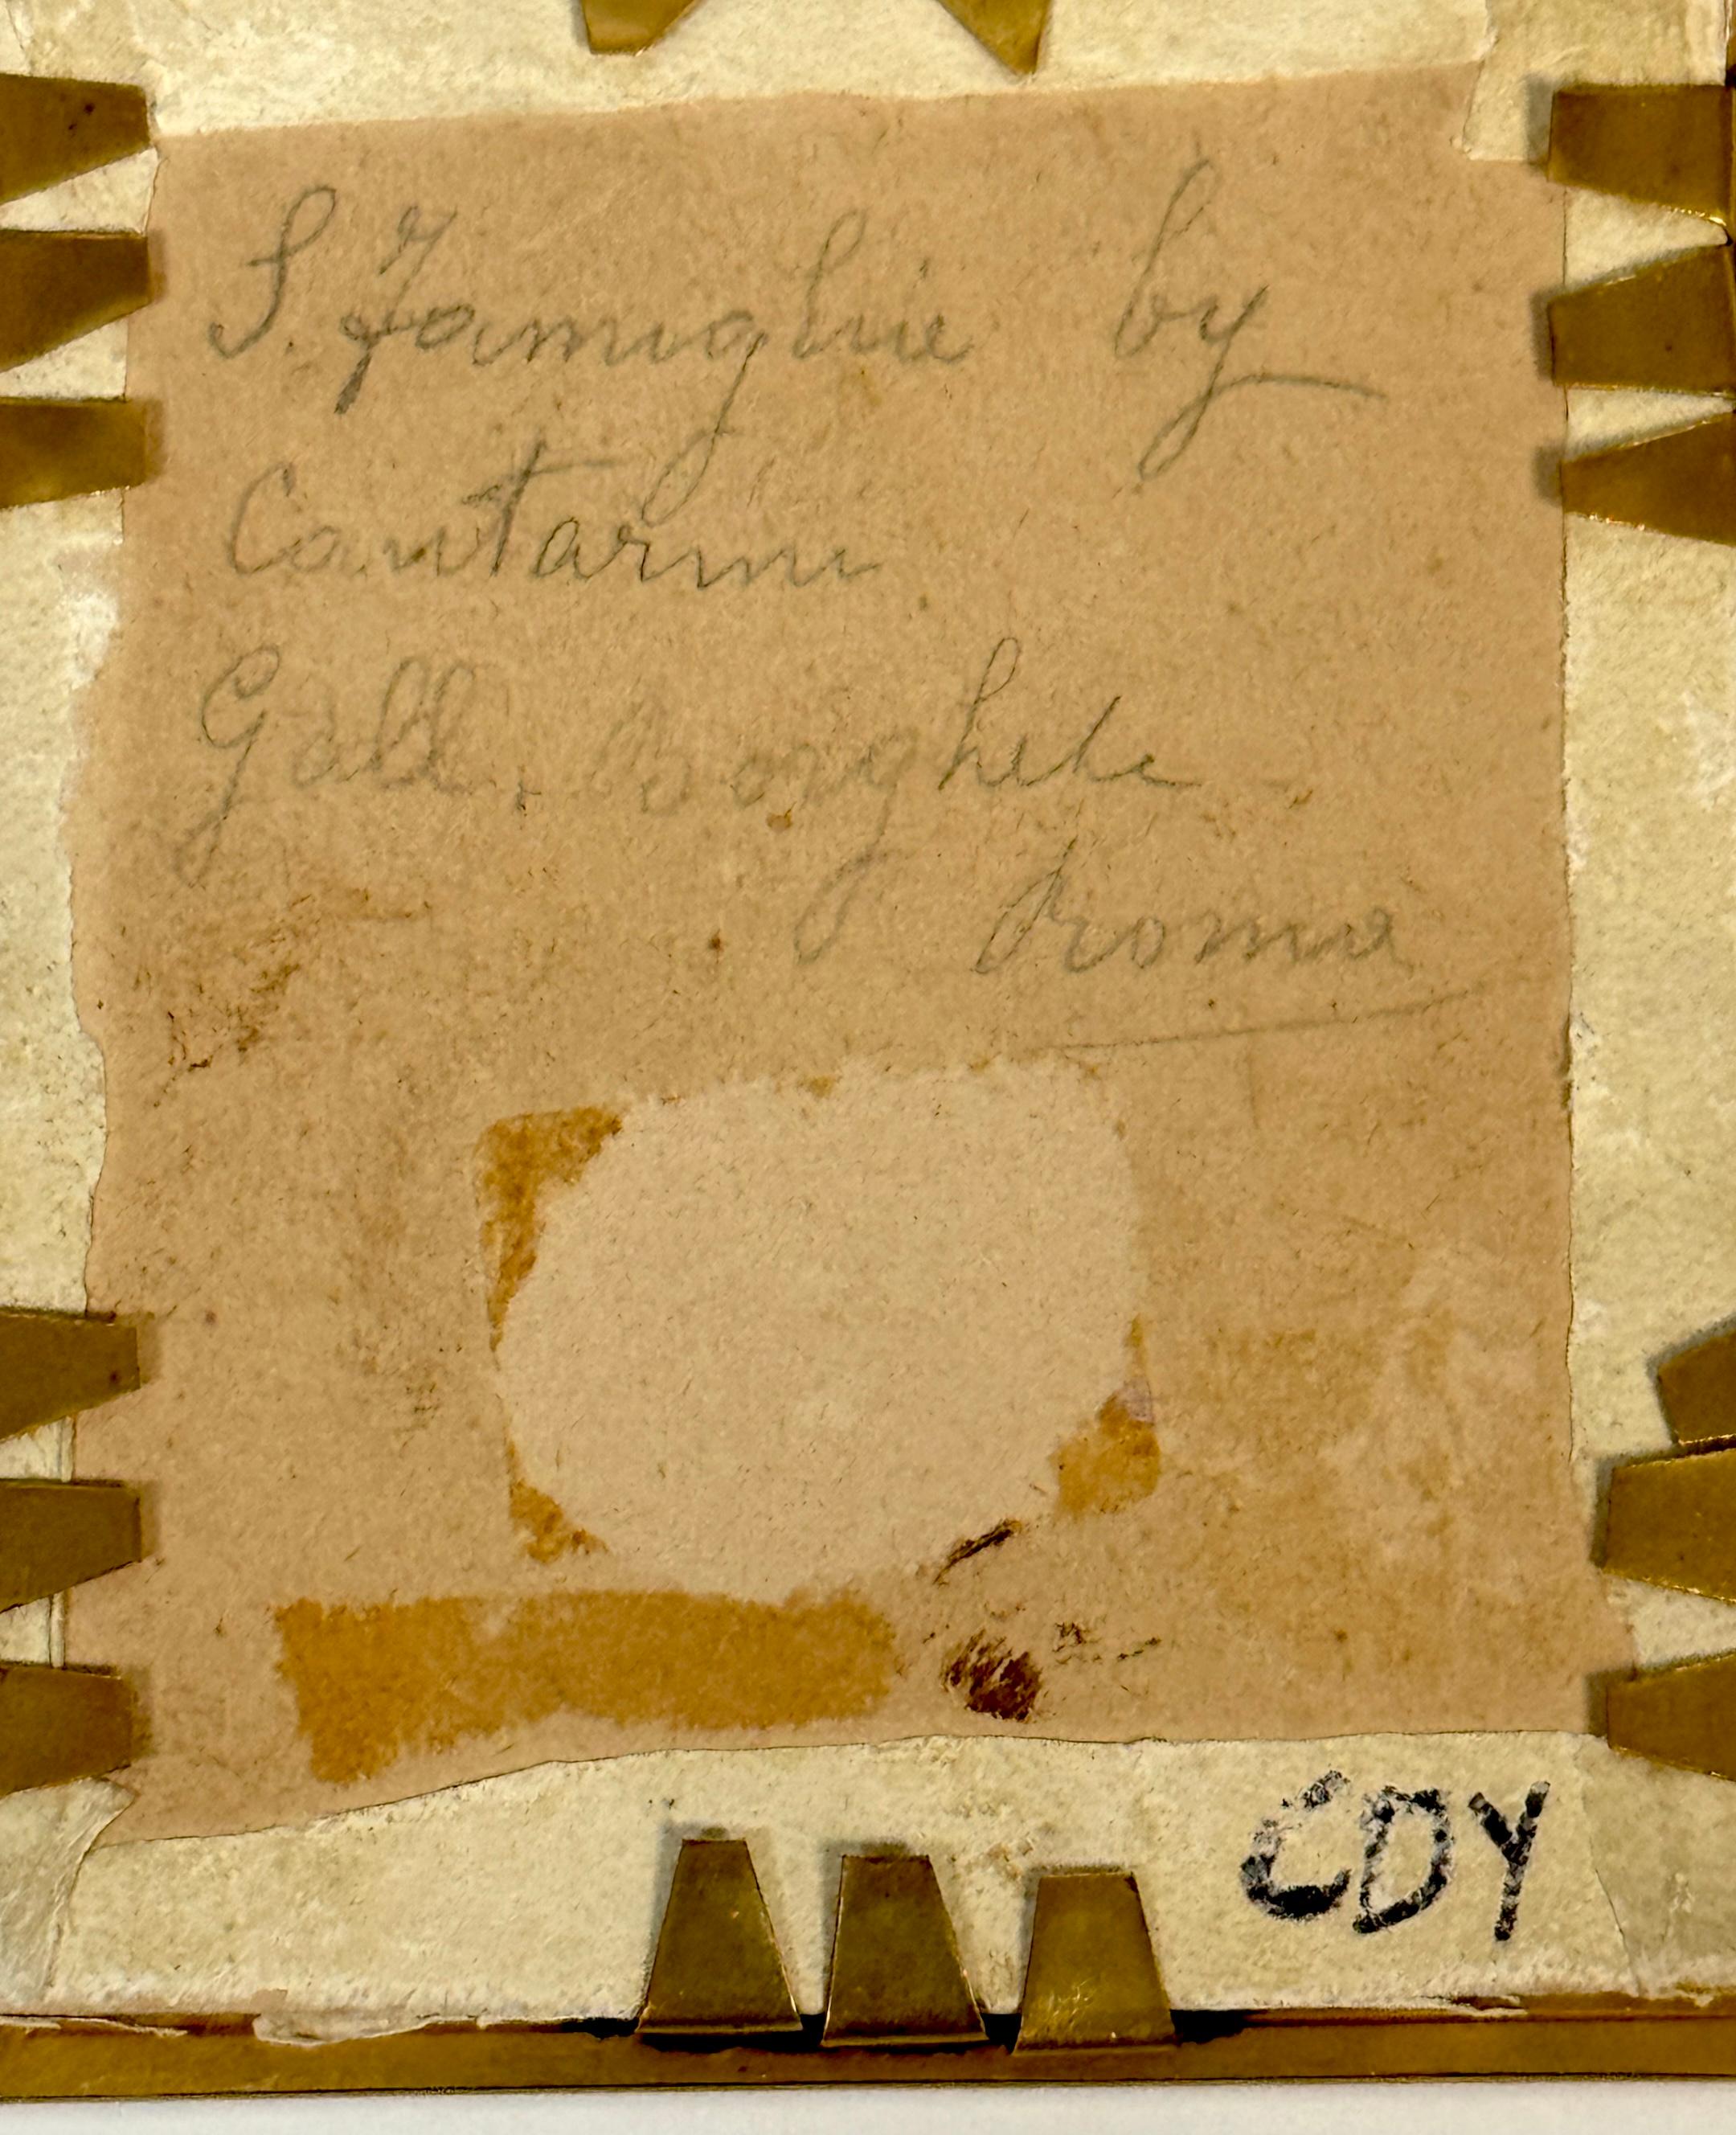 S. Famiglie by
Cantarini
Gall. Borghese
Roma
CDY